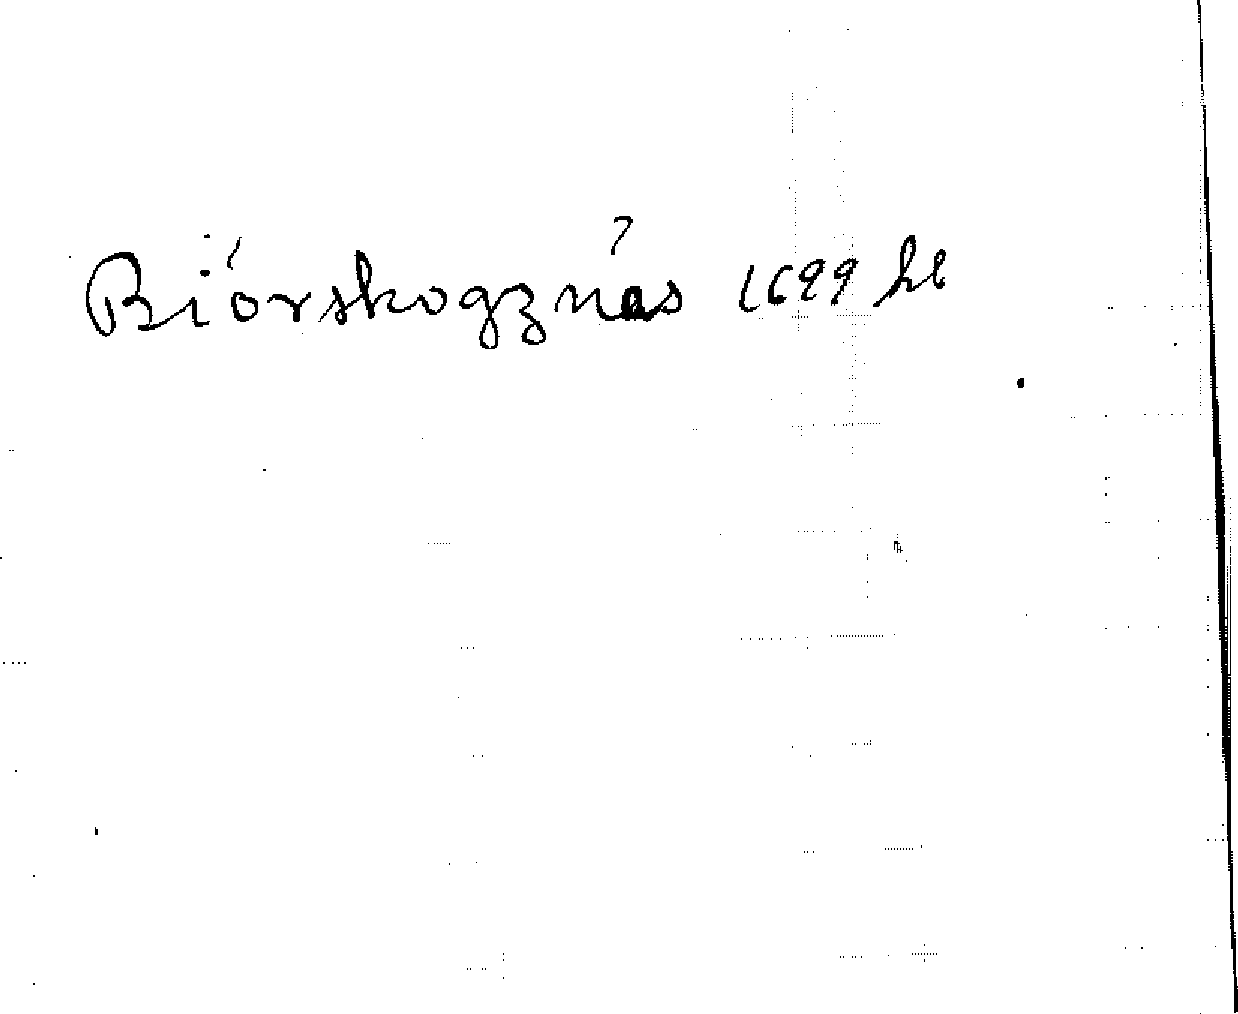 Biórskogznás 1699 hl